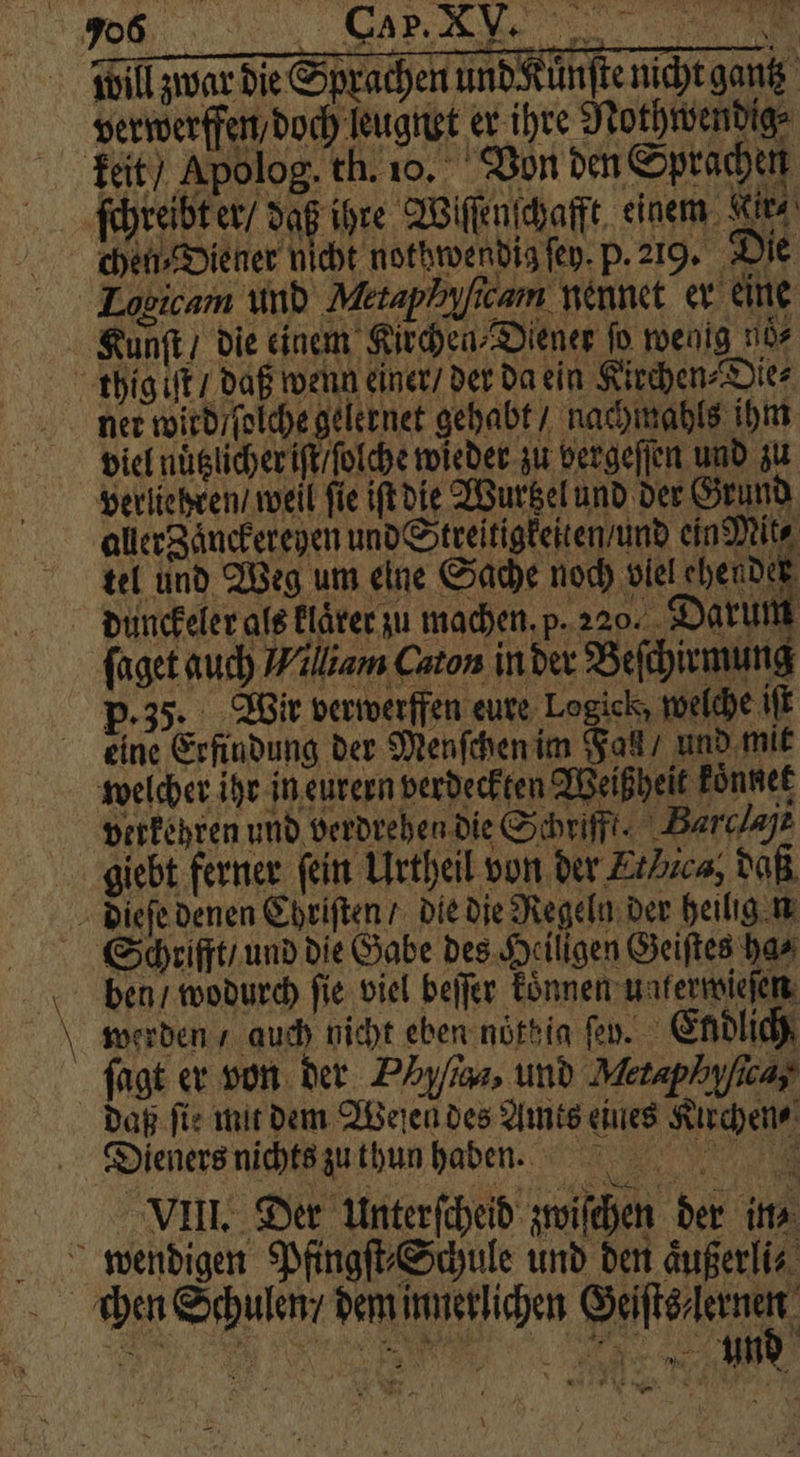 706 CAP. XV.
will zwar die Sprachen und Kuͤnſte nicht gantz
verwerffen/ doch leugnet er ihre Nothwendig⸗
keit/ Apolog. th. 10. Von den Sprachen
ſchreibt er/ daß ihre Wiſſenſchafft einem Kir⸗
chen⸗Diener nicht nothwendig ſey. p. 219. Die
Logicam und Metaphyſicam nennet er eine
Kunſt/ die einem Kirchen⸗Diener ſo wenig noͤ⸗
thig iſt/ daß wenn einer/ der da ein Kirchen⸗Die⸗
ner wird/ ſolche gelernet gehabt/ nachmahls ihm
viel nuͤtzlicher iſt/ ſolche wieder zu vergeſſen und zu
verliehren/ weil ſie iſt die Wurtzel und der Grund
aller Zaͤnckereyen und Streitigkeiten/ und ein Mit⸗
tel und Weg um eine Sache noch viel ehender
dunckeler als klaͤrer zu machen. p. 220. Darum
ſaget auch William Caton in der Beſchirmung
p. 35. Wir verwerffen eure Logick, welche iſt
eine Erfindung der Menſchen im Fall/ und mit
welcher ihr in eurern verdeckten Weißheit koͤnnet
verkehren und verdrehen die Schrifft. Barclajı
giebt ferner ſein Urtheil von der Ethica, daß
dieſe denen Chriſten/ die die Regeln der heilig n
Schrifft/ und die Gabe des Heiligen Geiſtes ha⸗
ben/ wodurch ſie viel beſſer koͤnnen unterwieſen
werden/ auch nicht eben noͤthig ſey. Endlich
ſagt er von der Phyſica, und Metaphyſica,
daß ſie mit dem Weſen des Amts eines Kirchen⸗
Dieners nichts zu thun haben.
VIII. Der Unterſcheid zwiſchen der in⸗
wendigen Pfingſt⸗Schule und den aͤußerli⸗
chen Schulen/ dem innerlichen Geiſts⸗lernen
und